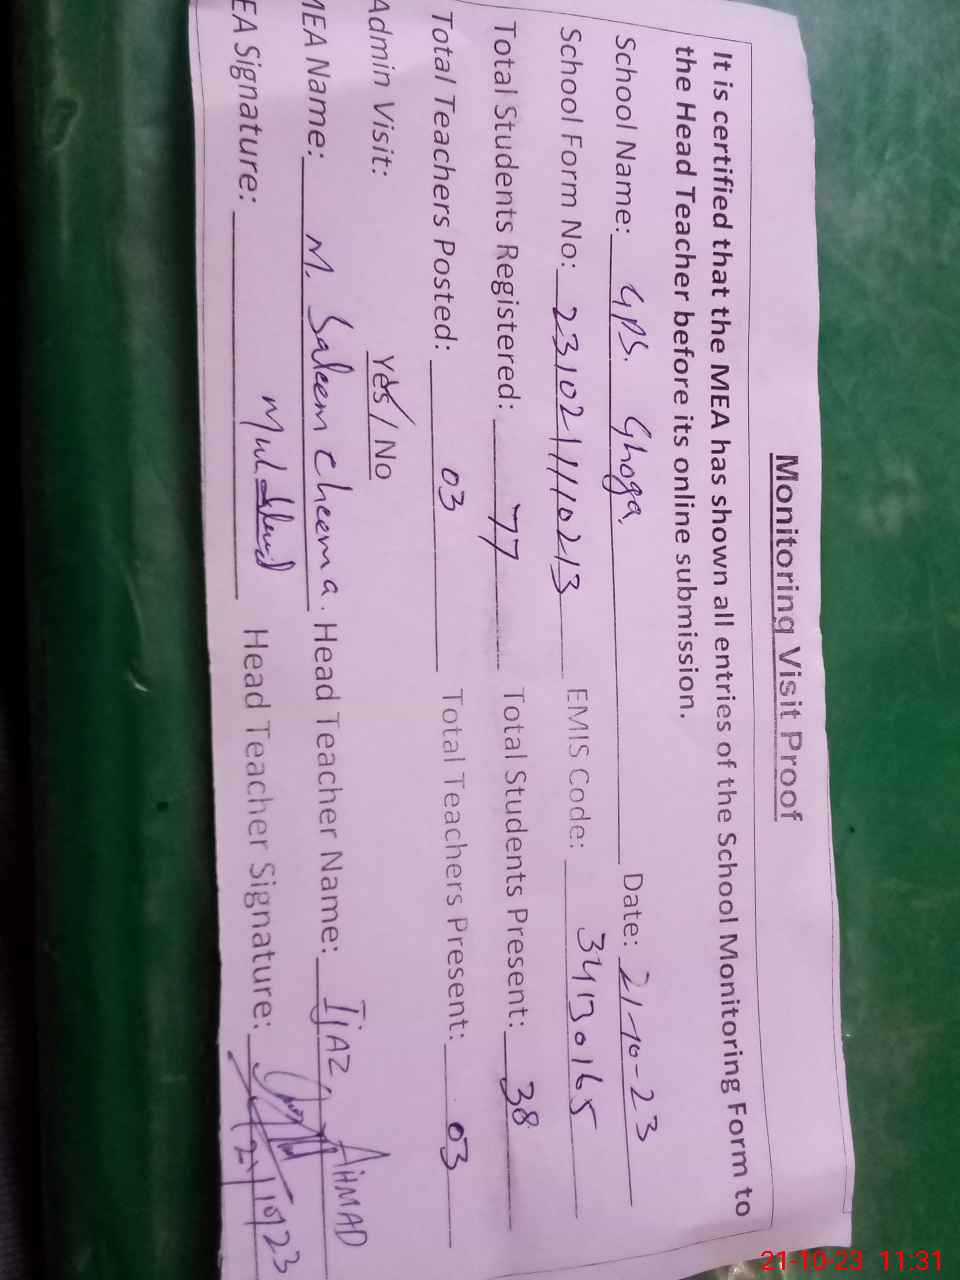 Monitoring Visit Proof
It is certified that the MEA has shown all entries of the School Monitoring Form to
the Head Teacher before its online submission.
School Name: GPS. Ghoga Date: 21-10-23
School Form No: 2310211110213 EMIS Code: 34130165
Total Students Registered: 77 Total Students Present: 38
Total Teachers Posted: 03 Total Teachers Present: 03
Admin Visit: Yes / No
MEA Name: M. Saleem Cheema. Head Teacher Name: IJAZ AHMAD
EA Signature: Head Teacher Signature:
21-10-23 11:31